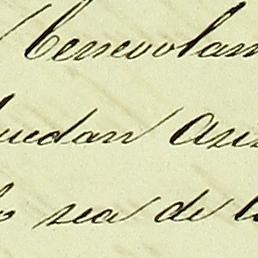 Benevolam
quedan asis
sea de l